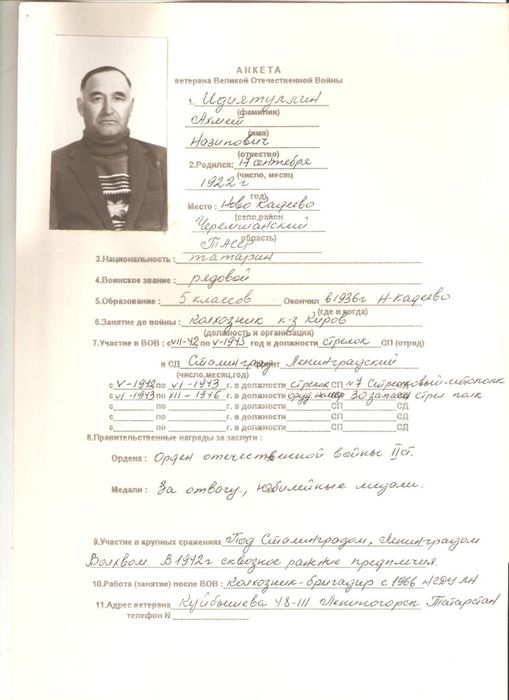 АНКЕТА
ветерана Великой Отечественной Войны
1. Идиятуллин
(фамилия)
Ахмет
(имя)
Назипович
(отчество)
2.Родился: 17 сентября
(число, месяц
1922г
год)
Место : Ново Кадеево
(село,район
Черемшанский
область)
ТАССР
3.Национальность : татарин
4.Воинское звание : рядовой
5.Образование : 5 классов Окончил в 1936г Н-Кадеево
(где и когда)
6.Занятие до войны : Колхозник к-з Киров
(должность и организация)
7.Участие в ВОВ : с VII-42 по V-1945 год в должности стрелок СП (отряд)
и СД Сталинград Ленинградский
(число,месяц,год)
с V-1942 по VI-1943 г. в должности стрелок СП №7 Стрелковый
с VI-1943 по XII-1946 г. в должности оруд. номер 30 запасн стрел полк
с по г. в должности СП СД
с по г. в должности СП СД
8.Правительственные награды за заслуги :
Ордена : Орден отечественной войны II ст.
Медали : За отвагу, Юбилейные медали.
9.Участие в крупных сражениях Под Сталинградом, Ленинградом
Волхвом. В 1942г сквозное ранение предплечия.
10.Работа (занятие) после ВОВ : Колхозник-бригадир с 1966
11.Адрес ветерана Куйбышева 48-111 Лениногорск Татарстан
телефон N